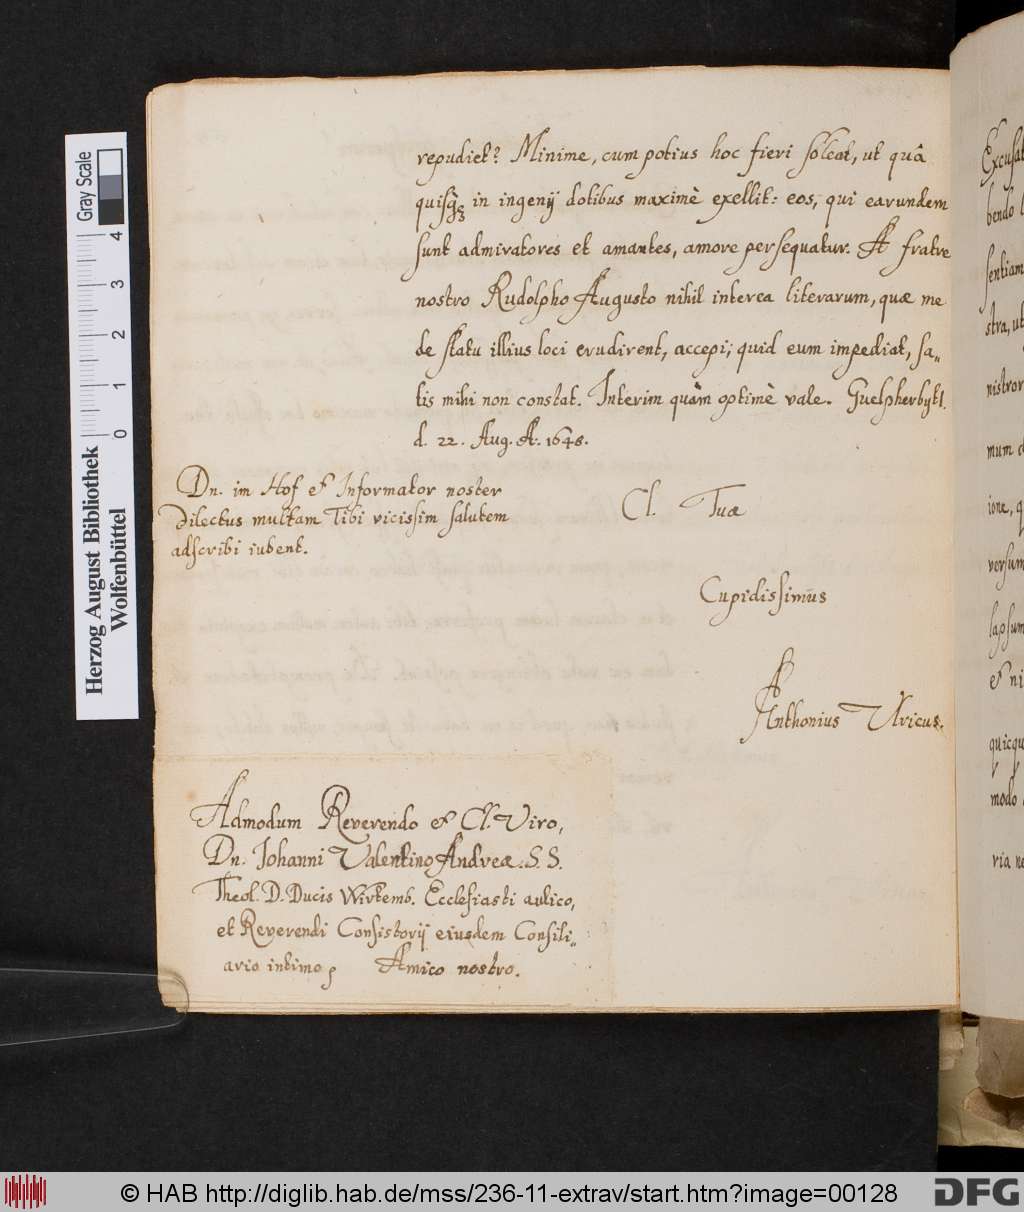 repudiet? Minime, cum potius hoc fieri soleat, ut quâ
quisq; in ingenij dotibus maximè exellit: eos, qui earundem
sunt admiratores et amantes, amore persequatur. A fratre
nostro Rudolpho Augusto nihil interea literarum, quæ me
de statu illius loci erudirent, accepi; quid eum impediat, sa„
tis mihi non constat. Interim quàm optimè vale. Guelpherbyti.
d. 22. Aug. A. 1648.
Dn. im Hof et Informator noster
dilectus multam Tibi vicissim salutem
adscribi iubent.
Cl. Tuæ
Cupidissimus
Anthonius Ulricus.
Admodum Reverendo et Cl. Viro,
Dn. Johanni Valentino Andreæ. S. S.
Theol. D. Ducis Wirtemb. Ecclesiasti aulico,
et Reverendi Consistorij eiusdem Consili„
ario intimo, Amico nostro.
Excusat
bendo
sentiam
stra, ut
nistror
mum
ione, q
versum
lapsum
et ni
quicqu
modo
ria ne
Gray Scale
0 1 2 3 4
Herzog August Bibliothek
Wolfenbüttel
© HAB http://diglib.hab.de/mss/236-11-extrav/start.htm?image=00128
DFG